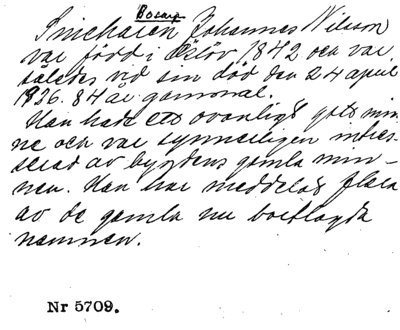 Bosarp
Smeharen Johannes Nilsson
var född i Öslöv 1842 och var
således vid sin död den 24 april
1926. 84 år gammal.
Han hade ett ovanligt gott min
ne och var synnerligen intres-
serad av bygdens gamla min-
nen. Han har meddelat flera
av de gamla nu bortlagda
namnen.
Nr 5709.